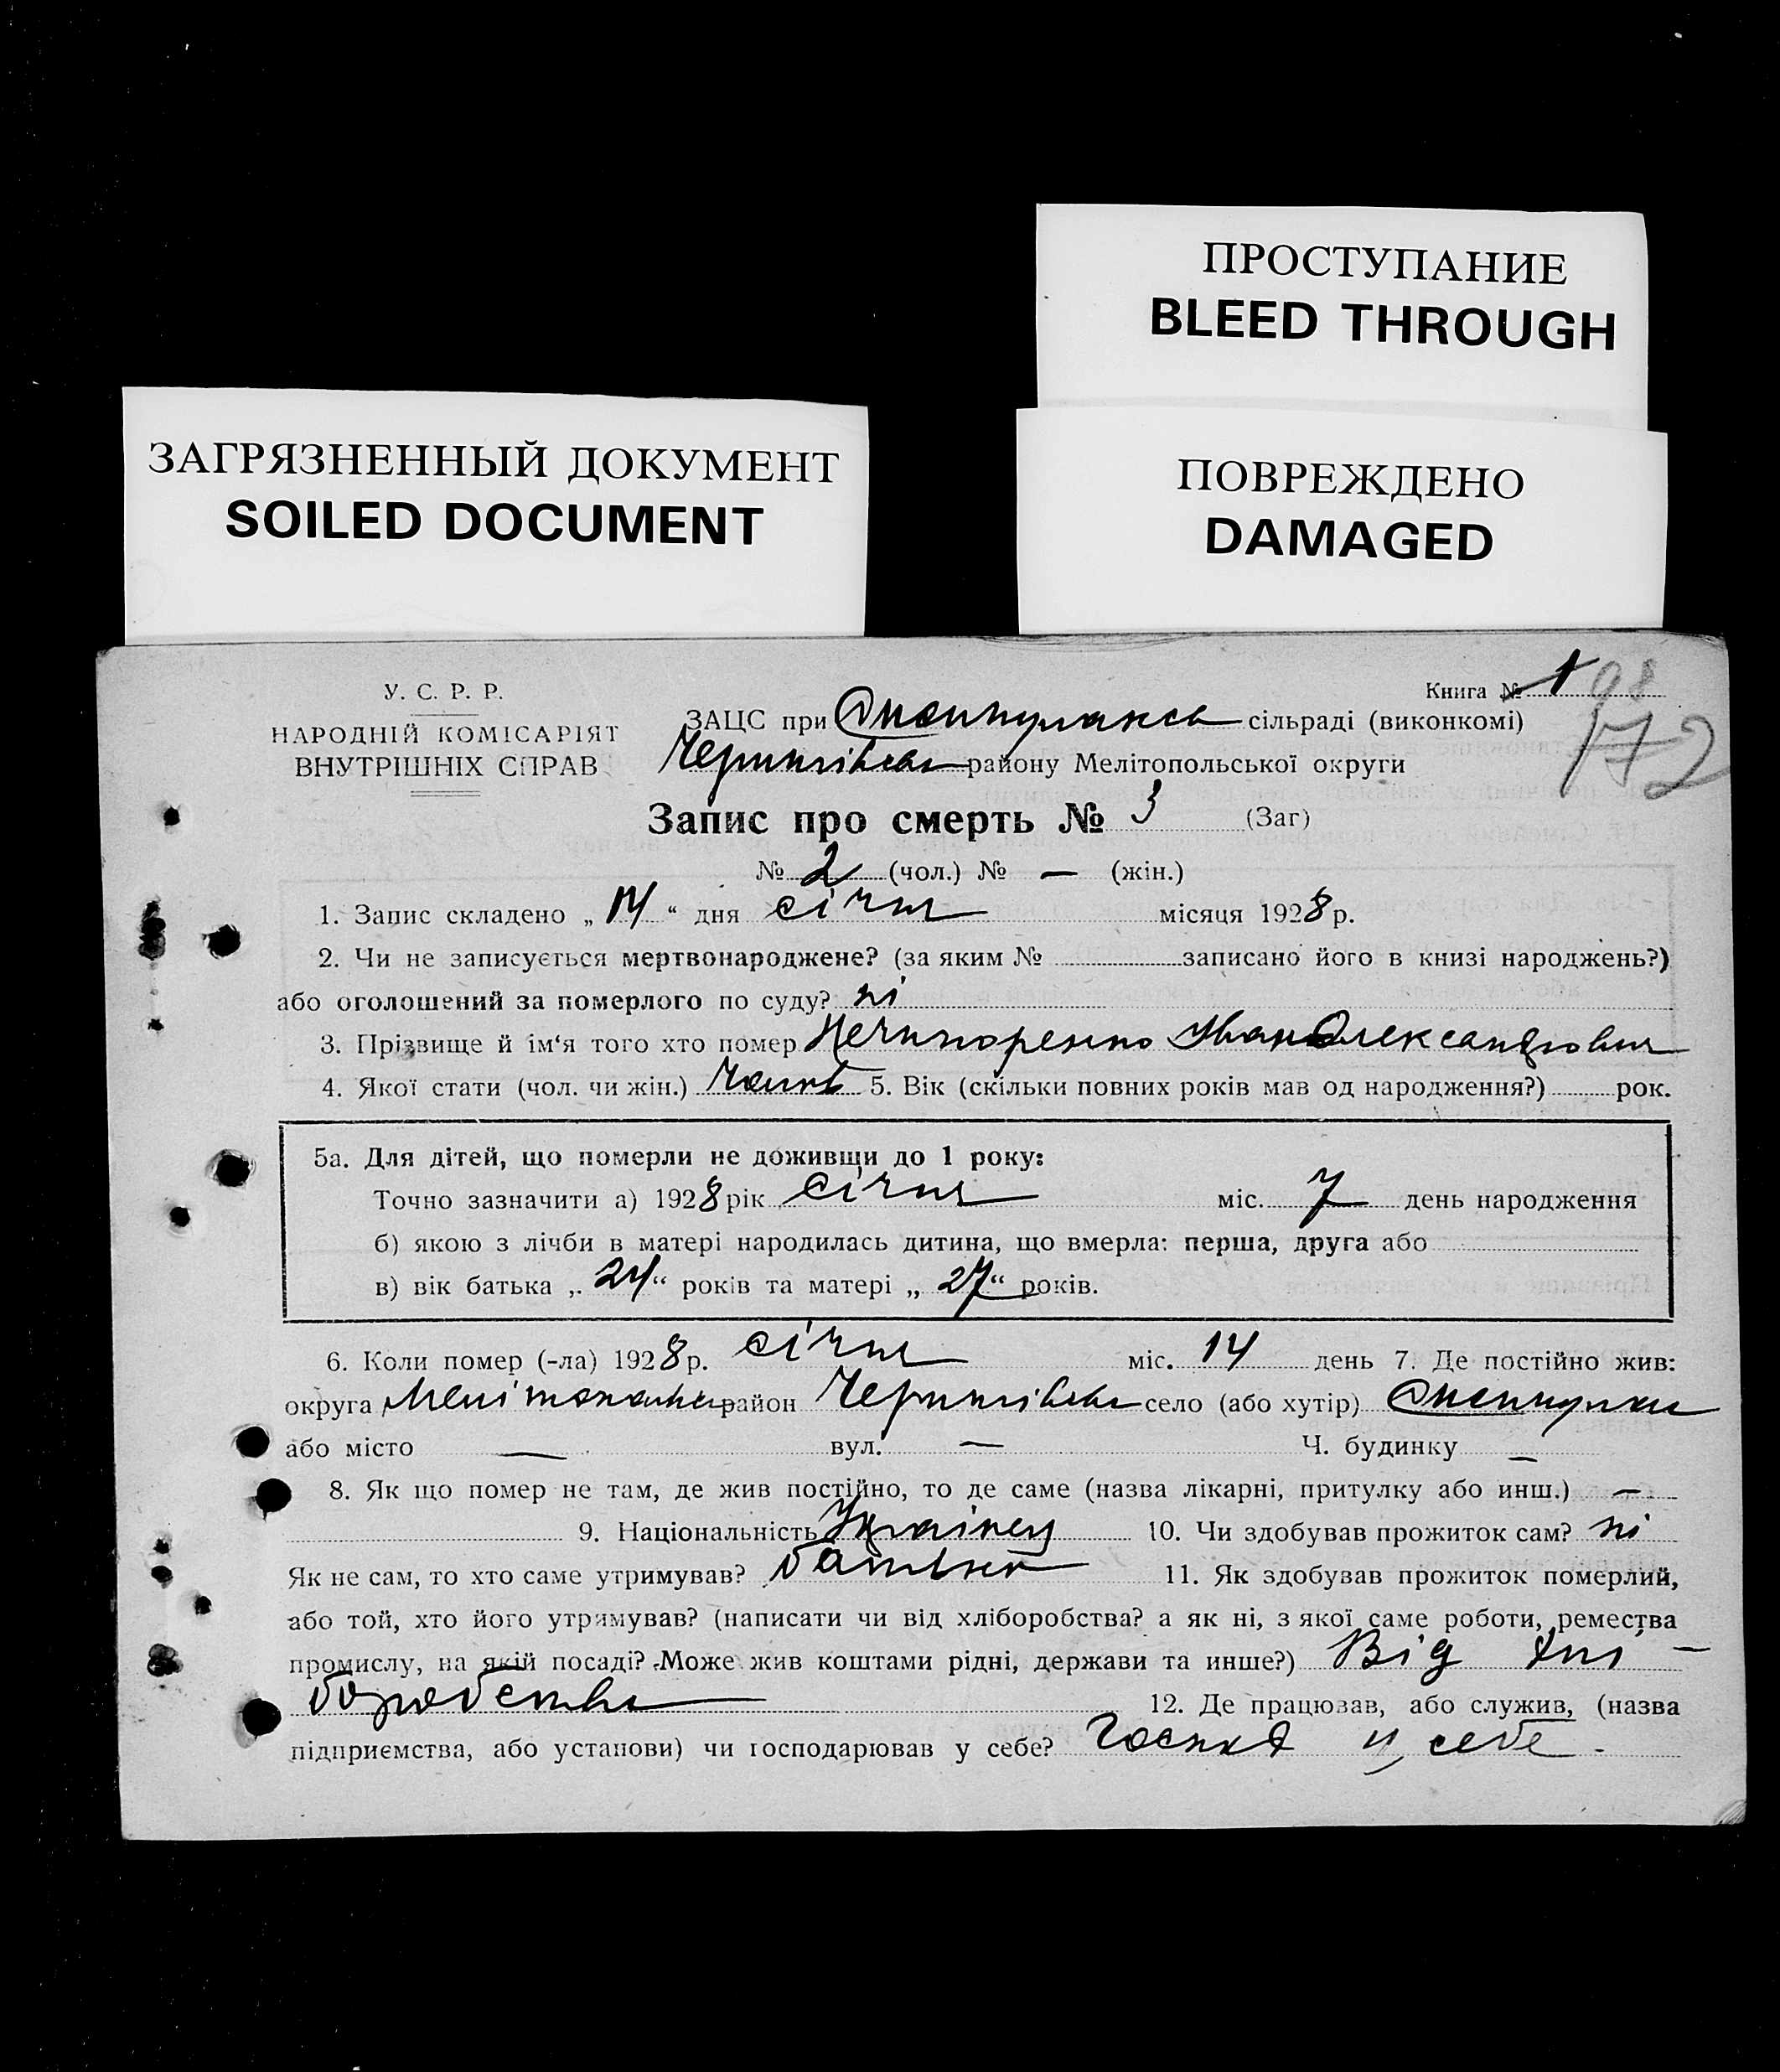 ПРОСТУПАНИЕ
BLEED THROUGH
ЗАГРЯЗНЕННЫЙ ДОКУМЕНТ
SOILED DOCUMENT
ПОВРЕЖДЕНО
DAMAGED
У. С. Р. Р.
НАРОДНІЙ КОМІСАРІЯТ
ВНУТРІШНІХ СПРАВ
Книга № 1 98
172
ЗАЦС при сільраді (виконкомі)
Чернигівськ району Мелітопольської округи
Запис про смерть № 3 (Заг)
№ 2 (чол.) № — (жін.)
1. Запис складено „ 14 “ дня січня місяця 1928 р.
2. Чи не записується мертвонароджене? (за яким № записано його в книзі народжень?)
або оголошений за померлого по суду? ні
3. Прізвище й ім‘я того хто помер Нечипоренко Іван Олександрович
4. Якої стати (чол. чи жін.) 5. Вік (скільки повних років мав од народження?) рок.
5а. Для дітей, що померли не доживши до 1 року:
Точно зазначити а) 1928 рік січня міс. 7 день народження
б) якою з лічби в матері народилась дитина, що вмерла: перша, друга або
в) вік батька „ 24 “ років та матері „ 27 “ років.
6. Коли помер (-ла) 1928 р. січня міс. 14 день 7. Де постійно жив:
округа район Чернигівськ село (або хутір)
або місто — вул. — Ч. будинку —
8. Як що помер не там, де жив постійно, то де саме (назва лікарні, притулку або инш.) —
9. Національність Українец 10. Чи здобував прожиток сам? ні
Як не сам, то хто саме утримував? батько 11. Як здобував прожиток померлий,
або той, хто його утримував? (написати чи від хліборобства? а як ні, з якої саме роботи, ремества
промислу, на якій посаді? Може жив коштами рідні, держави та инше?) Від хлі-
боробства 12. Де працював, або служив, (назва
підприємства, або установи) чи господарював у себе? у себе.